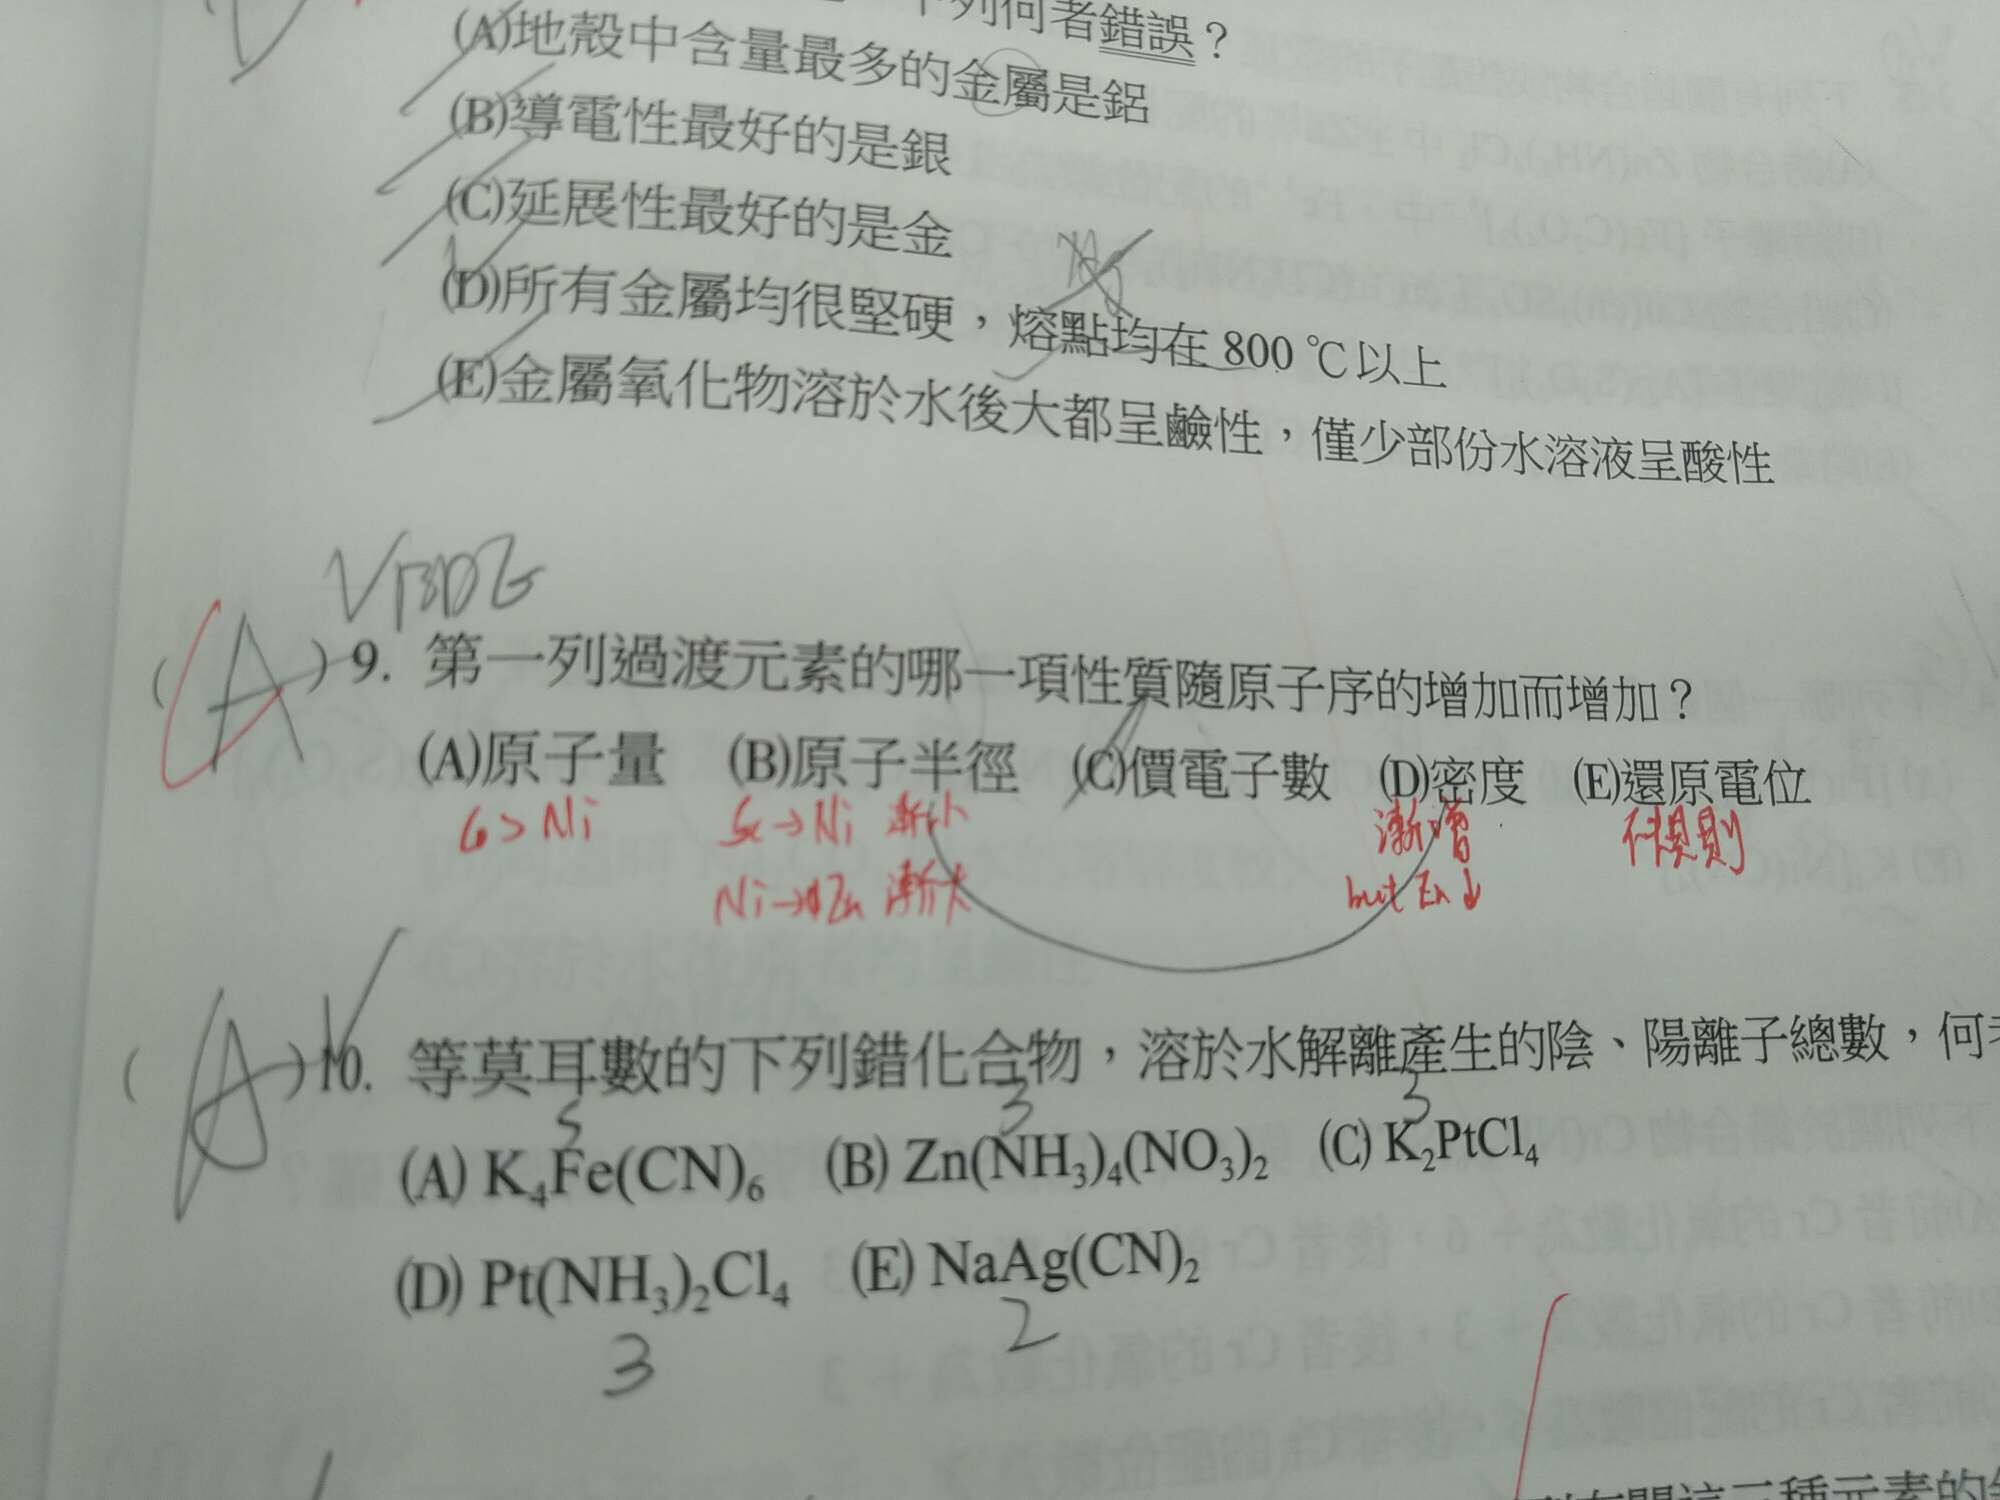 下列何者錯誤？
(A)地殼中含量最多的金屬是鋁
(B)導電性最好的是銀
(C)延展性最好的是金
Mg
(D)所有金屬均很堅硬，熔點均在 800 ℃以上
(E)金屬氧化物溶於水後大都呈鹼性，僅少部份水溶液呈酸性
VBDE
( A ) 9. 第一列過渡元素的哪一項性質隨原子序的增加而增加？
(A)原子量 (B)原子半徑 (C)價電子數 (D)密度 (E)還原電位
Co > Ni Sc→Ni 漸小 漸增 不規則
Ni→Zn 漸大 but Zn↓
( A ) 10. 等莫耳數的下列錯化合物，溶於水解離產生的陰、陽離子總數，何
5 3 3
(A) K₄Fe(CN)₆ (B) Zn(NH₃)₄(NO₃)₂ (C) K₂PtCl₄
(D) Pt(NH₃)₂Cl₄ (E) NaAg(CN)₂
3 2